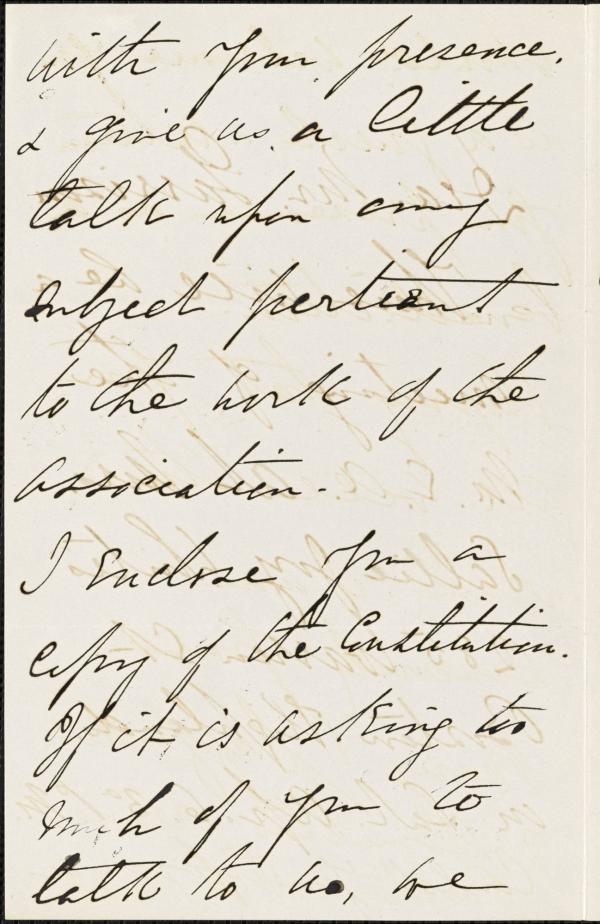 with your presence.
& give us a little
talk upon any
subject pertient
to the work of the
association.
I Enclose you a
copy of the Constitution.
If it is asking too
much of you to
talk to us, we